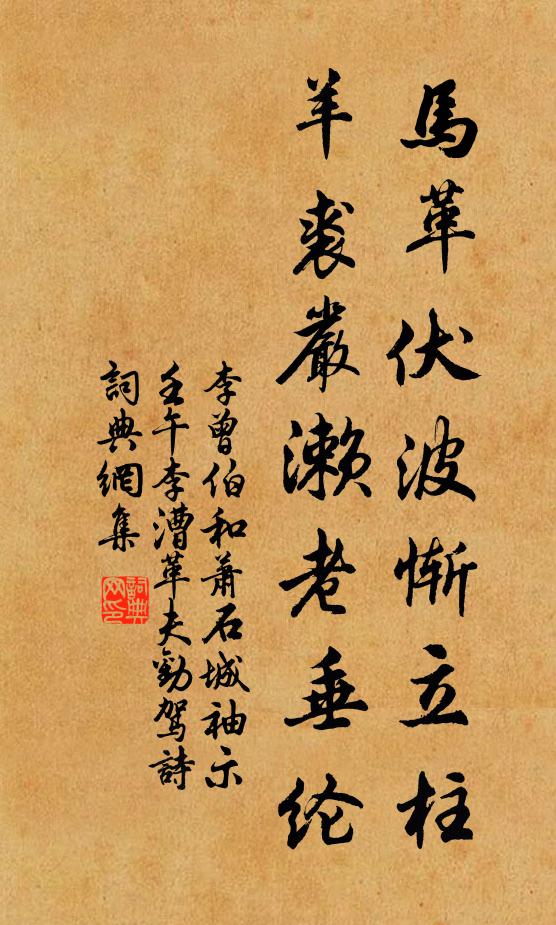 馬革伏波慚立柱
羊裘嚴濑老垂纶
李曾伯和萧石城袖示
壬午李漕革夫勸駕詩
詞典網集
詞典网印